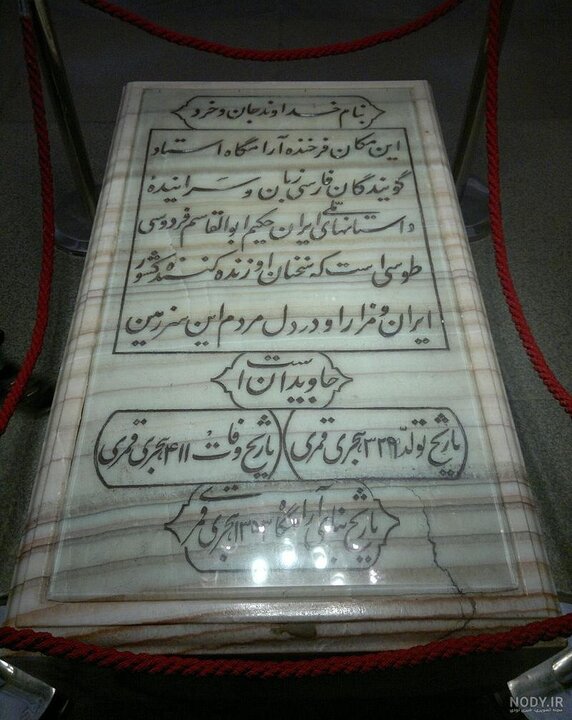 بنام خداوند جان و خرد
این مکان فرخنده آرامگاه استاد
گویندگان فارسی زبان و سراینده
داستانهای ملی ایران حکیم ابوالقاسم فردوسی
طوسی است که سخنان او زنده کننده کشور
ایران و مزار او در دل مردم این سرزمین
جاویدان است
تاریخ تولد ۳۲۹ هجری قمری تاریخ وفات ۴۱۱ هجری قمری
تاریخ بنای آرامگاه ۱۳۵۳ هجری قمری
NODY.IR